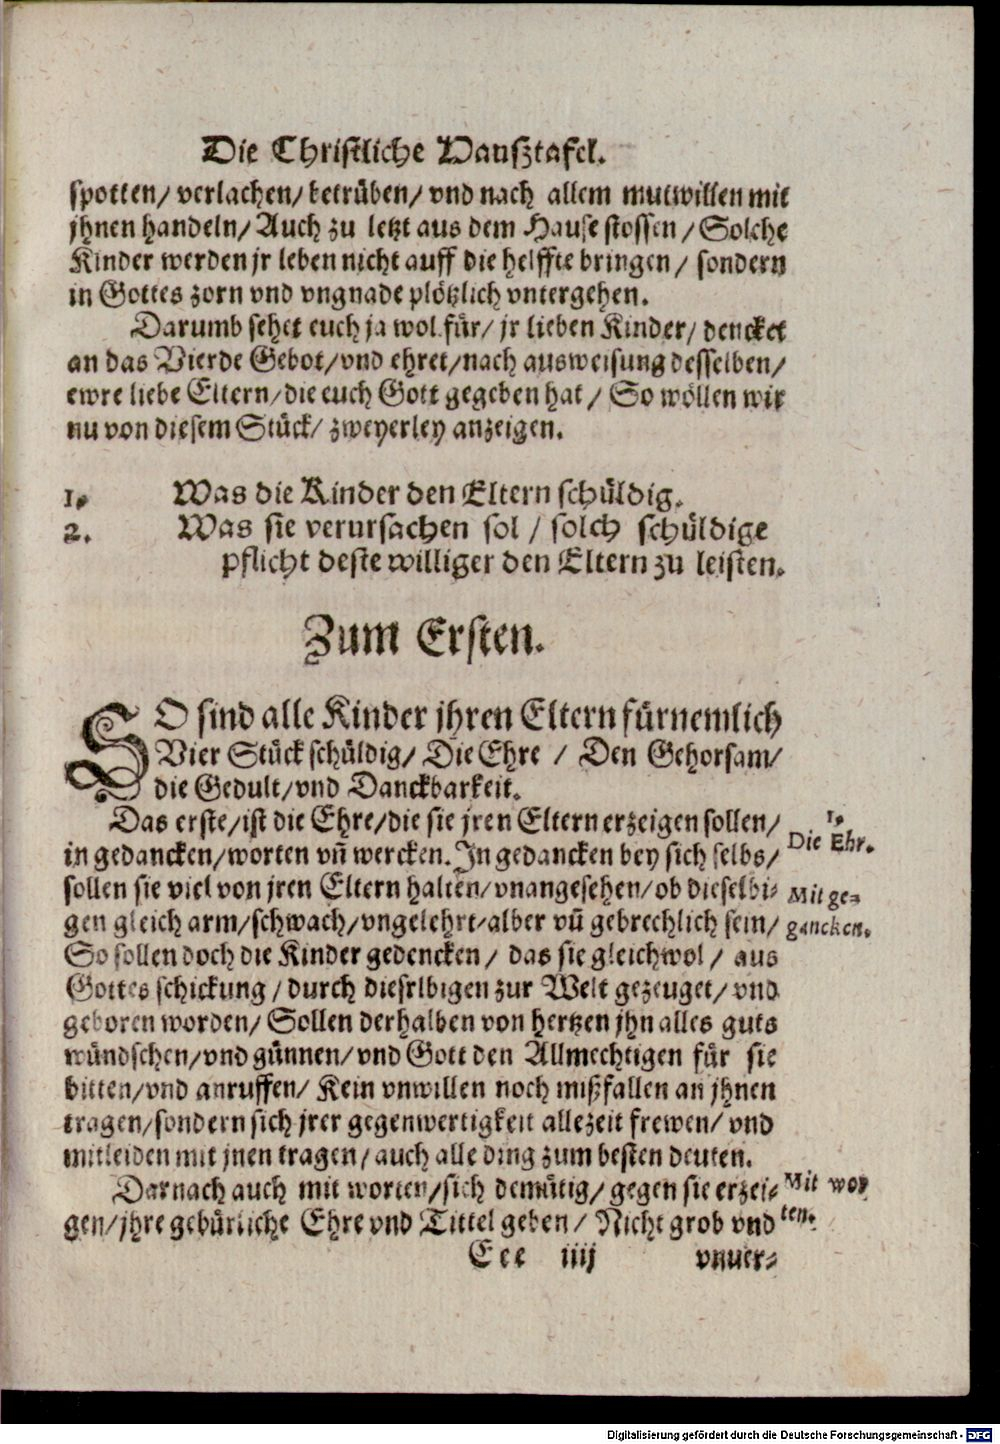 Die Christliche Hausztafel.
spotten/ verlachen/ betrüben/ vnd nach allem mutwillen mit
jhnen handeln/ Auch zu letzt aus dem Hause stossen/ Solche
Kinder werden jr leben nicht auff die helffte bringen/ sondern
in Gottes zorn vnd vngnade plötzlich vntergehen.
Darumb sehet euch ja wol für/ jr lieben Kinder/ dencket
an das Vierde Gebot/ vnd ehret/ nach ausweisung desselben/
ewre liebe Eltern/ die euch Gott gegeben hat/ So wöllen wir
nu von diesem Stück/ zweyerley anzeigen.
1. Was die Kinder den Eltern schüldig.
2. Was sie verursachen sol/ solch schüldige
pflicht deste williger den Eltern zu leisten.
Zum Ersten.
SO sind alle Kinder jhren Eltern fürnemlich
Vier Stück schüldig/ Die Ehre/ Den Gehorsam/
die Gedult/ vnd Danckbarkeit.
Das erste/ ist die Ehre/ die sie jren Eltern erzeigen sollen/
1.
Die Ehr.
in gedancken/ worten vñ wercken. In gedancken bey sich selbs/
sollen sie viel von jren Eltern halten/ vnangesehen/ ob dieselbi-
Mit ge-
gen gleich arm/ schwach/ vngelehrt/ alber vñ gebrechlich sein/
gancken.
So sollen doch die Kinder gedencken/ das sie gleichwol/ aus
Gottes schickung/ durch dieselbigen zur Welt gezeuget/ vnd
geboren worden/ Sollen derhalben von hertzen jhn alles guts
wündschen/ vnd günnen/ vnd Gott den Allmechtigen für sie
bitten/ vnd anruffen/ Kein vnwillen noch mißfallen an jhnen
tragen/ sondern sich jrer gegenwertigkeit allezeit frewen/ vnd
mitleiden mit jnen tragen/ auch alle ding zum besten deuten.
Darnach auch mit worten/ sich demütig/ gegen sie erzei-
Mit wor
gen/ jhre gebürliche Ehre vnd Tittel geben/ Nicht grob vnd
ten.
Eee iiij vnuer-
Digitalisierung gefördert durch die Deutsche Forschungsgemeinschaft - DFG